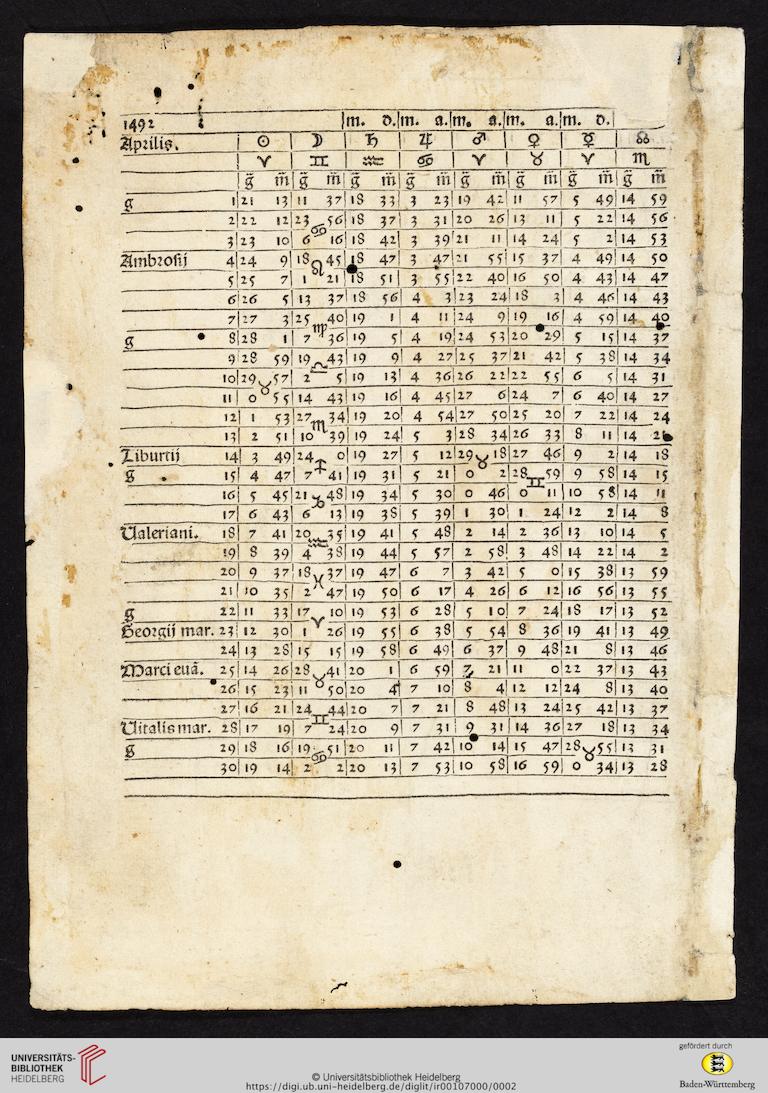 1492 m. d. m. a. m. a. m. a. m. d.
Aprilis. ☉ ☽ ♄ ♃ ♂ ♀ ☿ ☊
♈ ♊ ♒ ♋ ♈ ♉ ♈ ♏
g̃ m̃ g̃ m̃ g̃ m̃ g̃ m̃ g̃ m̃ g̃ m̃ g̃ m̃ g̃ m̃
g 1 21 13 11 37 18 33 3 23 19 42 11 57 5 49 14 59
2 22 12 23 56 18 37 3 31 20 26 13 11 5 22 14 56
3 23 10 ♋ 6 16 18 42 3 39 21 11 14 24 5 2 14 53
Ambrosij 4 24 9 18 45 18 47 3 47 21 55 15 37 4 49 14 50
5 25 7 ♌ 1 21 18 51 3 55 22 40 16 50 4 43 14 47
6 26 5 13 37 18 56 4 3 23 24 18 3 4 46 14 43
7 27 3 25 40 19 1 4 11 24 9 19 16 4 59 14 40
g 8 28 1 ♍ 7 36 19 5 4 19 24 53 20 29 5 15 14 37
9 28 59 19 43 19 9 4 27 25 37 21 42 5 38 14 34
10 29 57 ♎ 2 5 19 13 4 36 26 22 22 55 6 5 14 31
11 ♉ 0 55 14 43 19 16 4 45 27 6 24 7 6 40 14 27
12 1 53 27 34 19 20 4 54 27 50 25 20 7 22 14 24
13 2 51 ♏ 10 39 19 24 5 3 28 34 26 33 8 11 14
Tiburtij 14 3 49 24 0 19 27 5 12 29 18 27 46 9 2 14 18
g 15 4 47 ♐ 7 41 19 31 5 21 ♉ 0 2 28 59 9 58 14 15
16 5 45 21 48 19 34 5 30 0 46 ♊ 0 11 10 58 14 11
17 6 43 ♑ 6 13 19 38 5 39 1 30 1 24 12 2 14 8
Valeriani. 18 7 41 20 35 19 41 5 48 2 14 2 36 13 10 14 5
19 8 39 ♒ 4 38 19 44 5 57 2 58 3 48 14 22 14 2
20 9 37 18 37 19 47 6 7 3 42 5 0 15 38 13 59
21 10 35 ♓ 2 47 19 50 6 17 4 26 6 12 16 56 13 55
g 22 11 33 17 10 19 53 6 28 5 10 7 24 18 17 13 52
Georgij mar. 23 12 30 ♈ 1 26 19 55 6 38 5 54 8 36 19 41 13 49
24 13 28 15 15 19 58 6 49 6 37 9 48 21 8 13 46
Marci euã. 25 14 26 28 41 20 1 6 59 7 21 11 0 22 37 13 43
26 15 23 ♉ 11 50 20 4 7 10 8 4 12 12 24 8 13 40
27 16 21 24 44 20 7 7 21 8 48 13 24 25 42 13 37
Vitalis mar. 28 17 19 ♊ 7 24 20 9 7 31 9 31 14 36 27 18 13 34
g 29 18 16 19 51 20 11 7 42 10 14 15 47 28 55 13 31
30 19 14 ♋ 2 2 20 13 7 53 10 58 16 59 ♉ 0 34 13 28
UNIVERSITÄTS-
BIBLIOTHEK
HEIDELBERG
© Universitätsbibliothek Heidelberg
https://digi.ub.uni-heidelberg.de/diglit/ir00107000/0002
gefördert durch
Baden-Württemberg